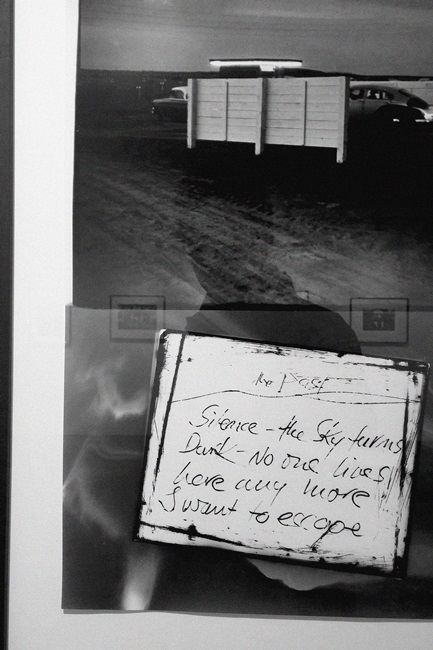 the Past
Silence - the Sky turns
Dark - No one lives
here any more
I want to escape